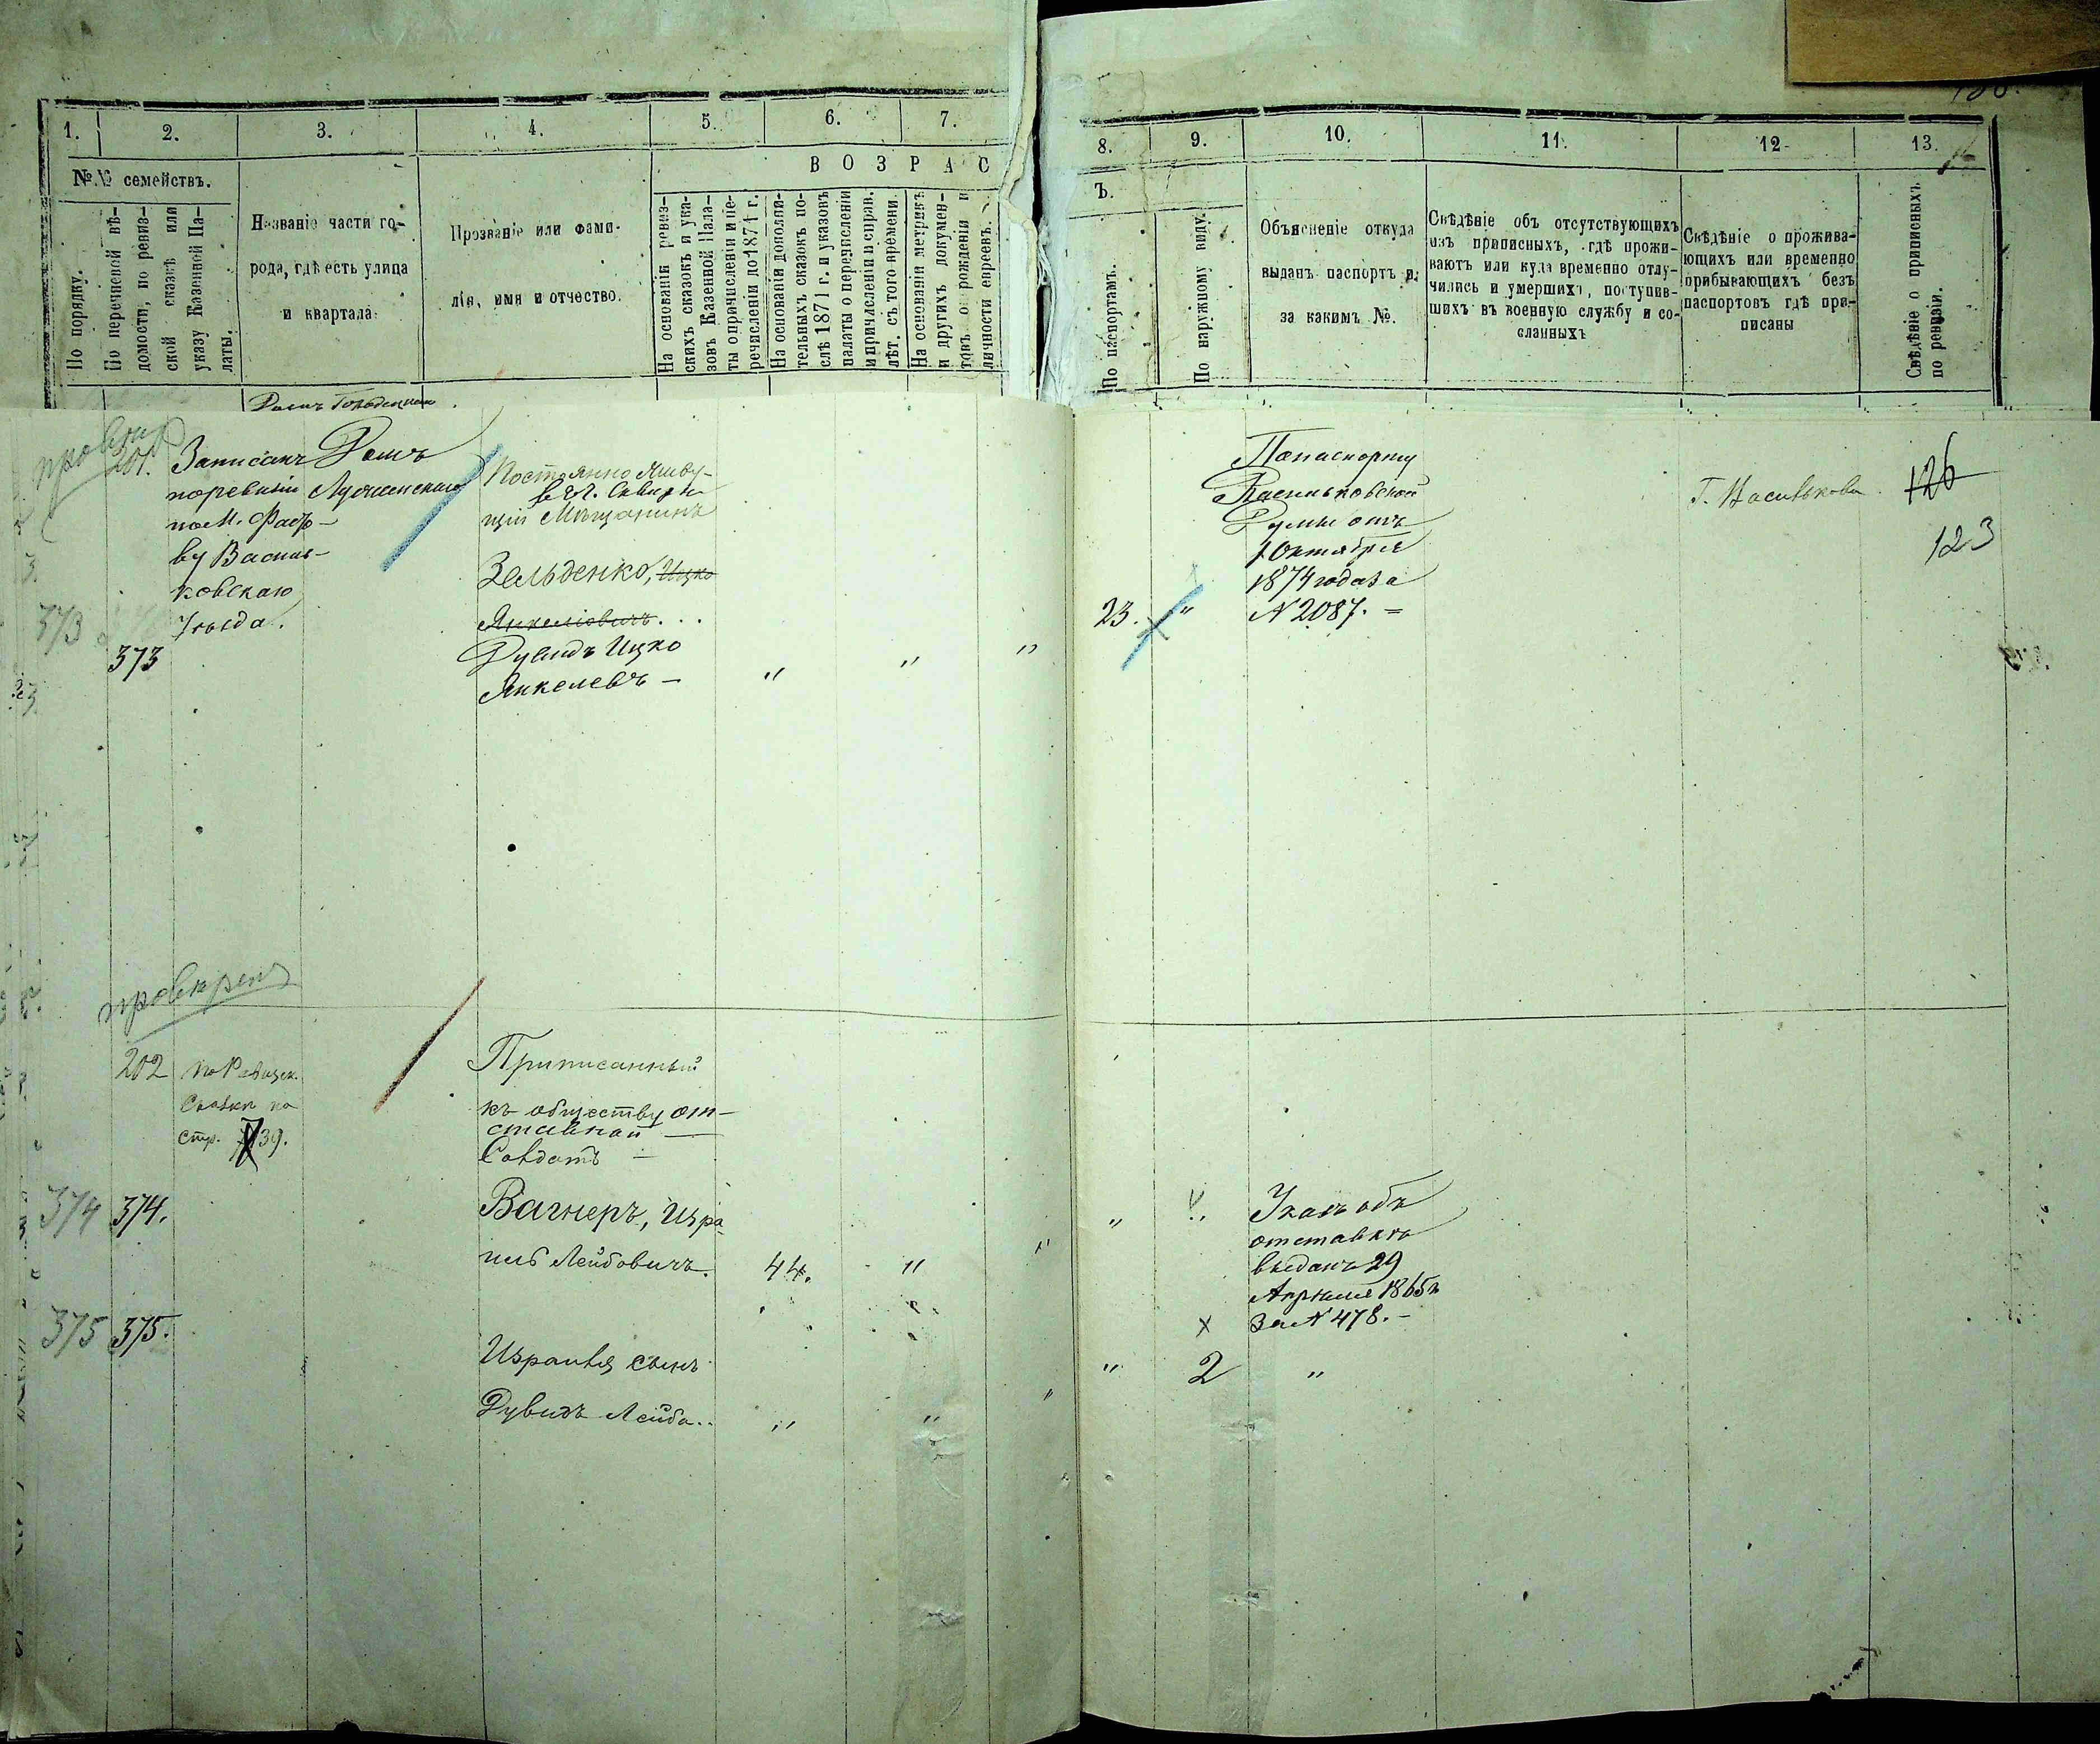 1.
2.
3.
4.
5.
6.
7.
В О З Р А С
№№ семействъ.
По порядку.
По перечневой вѣ-
домости, по ревиз-
ской сказкѣ или
указу Казенной Па-
латы.
Названіе части го-
рода, гдѣ есть улица
и квартала
Прозваніе или фами-
лія, имя и отчество.
На основаніи ревиз-
скихъ сказокъ и ука-
зовъ Казенной Пала-
ты о причисленіи и пе-
речисленіи до 1871 г.
На основаніи дополни-
тельныхъ сказокъ по-
слѣ 1871 г. и указовъ
палаты о перечисленіи
и причисленіи и справ.
лѣт. съ того времени.
На основаніи метрикъ
и другихъ докумен-
товъ о рожденіи и
личности евреевъ.
8.
9.
10.
11.
12.
13.
Ъ.
По паспортамъ.
По наружному виду.
Объясненіе откуда
выданъ паспортъ и
за какимъ №.
Свѣдѣніе объ отсутствующихъ
изъ приписныхъ, гдѣ прожи-
ваютъ или куда временно отлу-
чились и умершихъ, поступив-
шихъ въ военную службу и со-
сланныхъ
Свѣдѣніе о прожива-
ющихъ или временно
прибывающихъ безъ
паспортовъ гдѣ при-
писаны
Свѣдѣніе о приписныхъ
по ревизіи.
Домъ
201.
Записанъ
по ревизіи
по М. Фасто-
ву Василь-
ковскаго
Уѣзда.
Домъ
373
373
Постоянно живу-
щій Мѣщанинъ
Зельденко, Ицко
Янкеліовичъ...
Дувидъ Ицко
Янкелевъ —
" " "
23. "
По паспорту
Васильковской
Думы отъ
1 Октября
1874 года за
N 2087. =
Г. Васильковъ
126
123
провѣрен
202
по Ревизск.
Сказки на
стр. 39.
Приписанный
къ обществу от-
ставной —
Солдатъ —
374 374.
Вагнеръ, Изра
иль Лейбовичъ.
44. " "
"
Указъ объ
отставкѣ
выданъ 29
Апрѣля 1865 г
За N 478. —
375 375.
Израиля сынъ
Дувидъ Лейба..
" " "
" 2 "